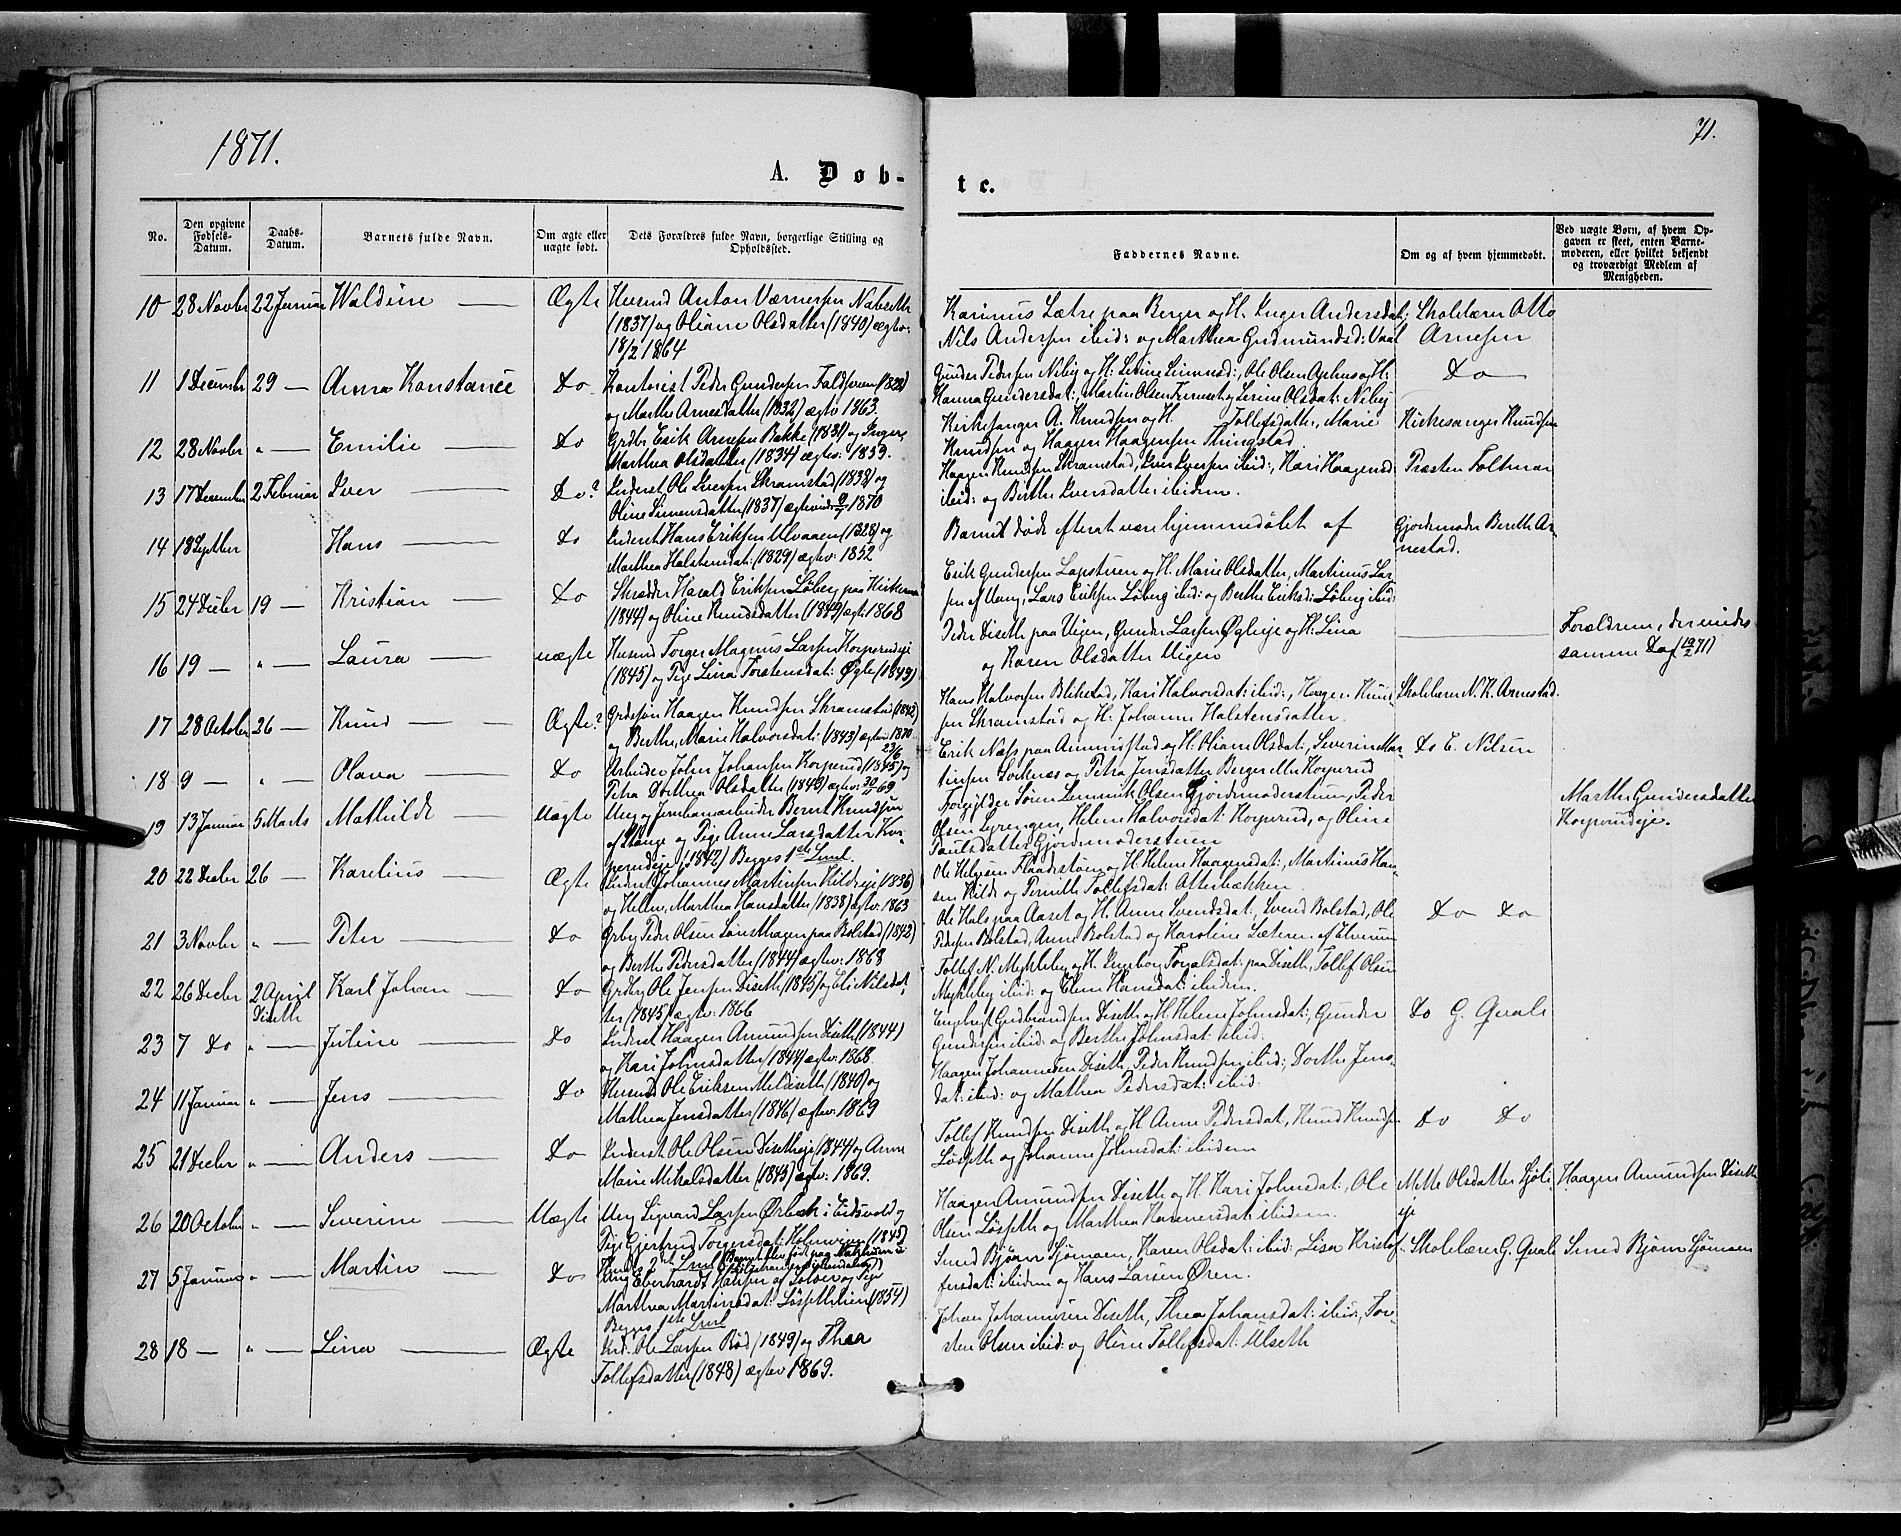 1871.
71.
A. Døb-
te.
No.
Den opgivne Fødsels-Datum.
Daabs-Datum.
Barnets fulde Navn.
Om ægte eller uægte født.
Dets Forældres fulde Navn, borgerlige Stilling og Opholdssted.
Faddernes Navne.
Om og af hvem hjemmedøbt.
Ved uægte Børn, af hvem Opgaven er skeet, enten Barnemoderen, eller hvilket bekjendt og troværdigt Medlem af Menigheden.
10 28 Novbr 22 Januar Waldine Ægte Husmd Anton Værnersen
(1837) og Oliane Olsdatter (1840) ægtev:
18/2 1864
Karinus Sætre paa Berger og H. Inger Andersdat: Skolelærer Otto
Nils Andersen ibid: og Marthea Gudmundsd: Arnesen
11 1 December 29 — Anna Konstance Do Kontorist Peder Gundersen (1828)
og Marthe Arnesdatter (1832) ægtv 1863.
Gunder Pedersen Nibij og H: Ole Olsen og H: Do
Hanna Gundersdat:, Martin Olsen og Lerine Olsdat: Nibij
12 28 Novbr " — Emilie Do Grdbr Erik Arnesen Bakke (1831) og Inger
Marthea Olsdatter (1834) ægtev: 1859.
Kirkesanger A. Knudsen og H. Tollefsdatter, Marie Kirkesanger Knudsen
Knudsen og Haagen Haagensen Thingstad
13 17 December 2 Februar Iver Do? Inderst Ole Iversen Skramstad (1838) og
Oline Simensdatter (1837) 1870
Haagen Knudsen Skramstad, Iver Iversen ibid:, Kari Haagensd: Præsten Foltmar
ibid: og Berthe Iversdatter ibidem.
14 18 Septber Hans Do Inderst Hans Eriksen Ulvaaen (1828) og
Marthea Halstensdat: (1829) ægtev: 1852
Barnet døde efterat være hjemmedøbt af Gjordemoder Bereth Ar-
nestad.
15 24 Decbr 19 — Kristian Do Skrædder Harald Eriksen Løberg paa
(1844) og Oline Knudsdatter (1849) ægt: 1868
Erik Gundersen og H. Marie Olsdatter, Martinus Lar-
sen af Vang, Lars Eriksen Løberg ibid: og Berthe Eriksd: Løberg ibid:
16 19 — " — Laura uægte Husmd Torger Magnus Larsen Korperudeje
(1845) og Pige Lina Torstensdat: Øgle (1849)
Peder Diseth paa Vigen, Gunder Larsen og H: Lina
og Karen Olsdatter Vigen
Forældrene, der viedes
samme Dag (19/2 71)
17 28 October 26 — Knud Ægte? Grdesøn Haagen Knudsen Skramstad (1842)
og Berthe Marie Halvorsdat: (1843) ægtev: 1870
Hans Halvorsen Blikstad, Kari Halvorsdat: ibid:, Haagen Knud- Skolelærer N. K. Arnestad.
sen Skramstad og H: Johanne Halstensdatter.
18 9 — " — Olava Do Arbeider John Johansen Korperud (1845) og
Petra Dorthea Olsdatter (1849) ægtev: 69
Erik Næss paa og H. Oliane Olsdat:, Severin Mar- Do E. Nilsen
tinsen og Petra Jensdatter Berger eller Korperud
19 13 Januar 5 Marts Mathilde Uægte Ung Jernbanearbeider Bernt Knudsen
af Stange og Pige Anne Larsdatter Kor-
perudeje (1842) Begges 1ste Leiel.
Forgylder Søren Olsen Gjordemoderstuen, Peder
Olsen Lyrengen, Helene Halvorsdat: Korperud, og Oline
Paulsdatter Gjordemoderstuen
Marthe Gundersdatter
Korperudeje.
20 22 Decbr 26 — Karelius Ægte Inderst Johannes Martinsen Kildeeje (1836)
og Helene Marthea Hansdatter (1838) ægtv: 1863
Ole Helgesen og H: Helene Haagensdat:, Martinus Han-
sen Kilde og Pernille Tollefsdat: Atterbækken.
21 3 Novbr " — Peter Do Grbr Peder Olsen paa Bolstad (1842)
og Berthe Pedersdatter (1844) ægtev: 1868
Ole Hals paa Aaset og H. Anne Svendsdat:, Svend Bolstad, Ole Do Do
Pedersen Bolstad, Anne Bolstad og Karoline Sæteren af Elverum
22 26 Decbr 2 April
Diseth
Karl Johan Do Grdbr Ole Jensen Diseth (1845) og Eli Nilsdat-
ter (1845) ægtev: 1866
Tollef N. Mykleby og H. Ingeborg paa Diseth, Tollef Olsen
Mykleby ibid: og Elen Hansdat: ibidem.
23 7 Do " — Juline Do Inderst Haagen Amundsen Diseth (1844)
og Kari Johnsdatter (1844) ægtev: 1868.
Engebret Gudbrandsen Diseth og H. Helene Johnsdat:, Gunder Do G. Qvale
Gundersen ibid: og Berthe Johnsdat: ibid:
24 11 Januar " — Jens Do Husmd Ole Eriksen (1840) og
Mathea Jensdatter (1846) ægtev: 1869
Haagen Johannesen Diseth, Peder Knudsen ibid:, Dorthe Jens-
dat: ibid: og Mathea Pedersdat: ibid:
25 21 Decbr " — Anders Do Inderst Ole Olsen Disetheje (1844) og Anne
Marie Mikalsdatter (1845) ægtev: 1869.
Tollef Knudsen Diseth og H. Anne Pedersdat:, Knud Knudsen Do Do
Løsseth og Johanne Johnsdat: ibidem
26 20 October " — Severine Uægte Ung Sigvard Larsen Ørbæk i Eidsvold og
Pige Gjertrud Torgersdat: (1845)
Haagen Amundsen Diseth og H: Kari Johnsdat:, Ole Mette Olsdatter
Olsen Løsseth og Marthea ibidem. eje
Haagen Amundsen Diseth
27 5 Januar " — Martin Do Ung Eberhardt Hansen af Solør og Pige
Marthea Martinsdat: (1854)
Begges 1ste Leiel
Smed Bjørn Sjømoen, Karen Olsdat: ibid: Lisa Kristof- Skolelærer G. Qvale Smed Bjørn Sjømoen
fersdat: ibidem og Hans Larsen Øren.
28 18 — " — Lina Ægte Ind: Ole Larsen Rød (1849) og Thea
Tollefsdatter (1848) ægtev 1869.
Johan Johannesen Diseth, Thea Johansdat: ibid:, Tor-
sten Olsen ibid: og Oline Tollefsdat: Ulseth